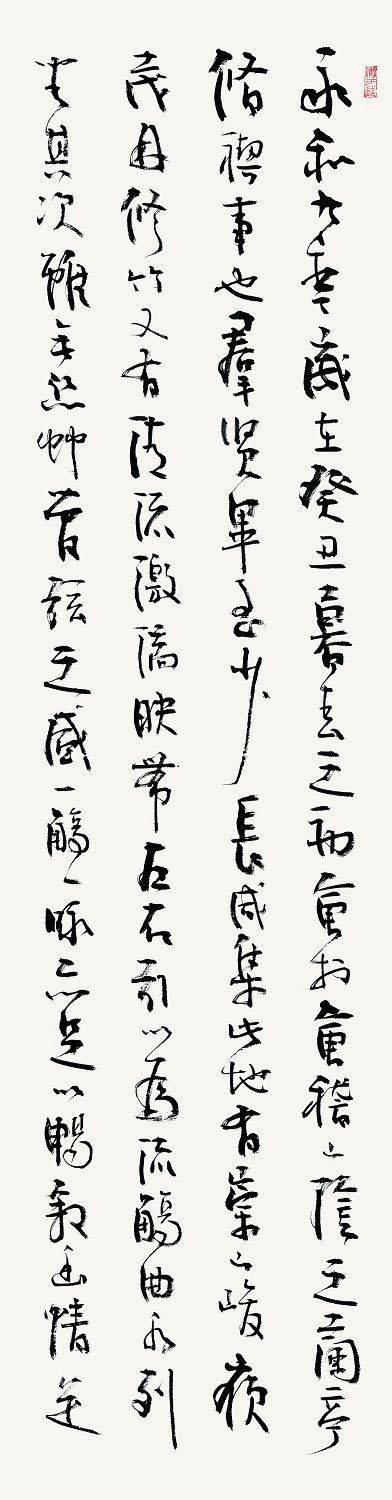 永和九年歲在癸丑暮春之初會於會稽山陰之蘭亭
脩禊事也羣賢畢至少長咸集此地有崇山峻嶺
茂林修竹又有清流激湍映帶左右引以為流觴曲水列
坐其次雖無絲竹管弦之盛一觴一詠亦足以暢敘幽情是